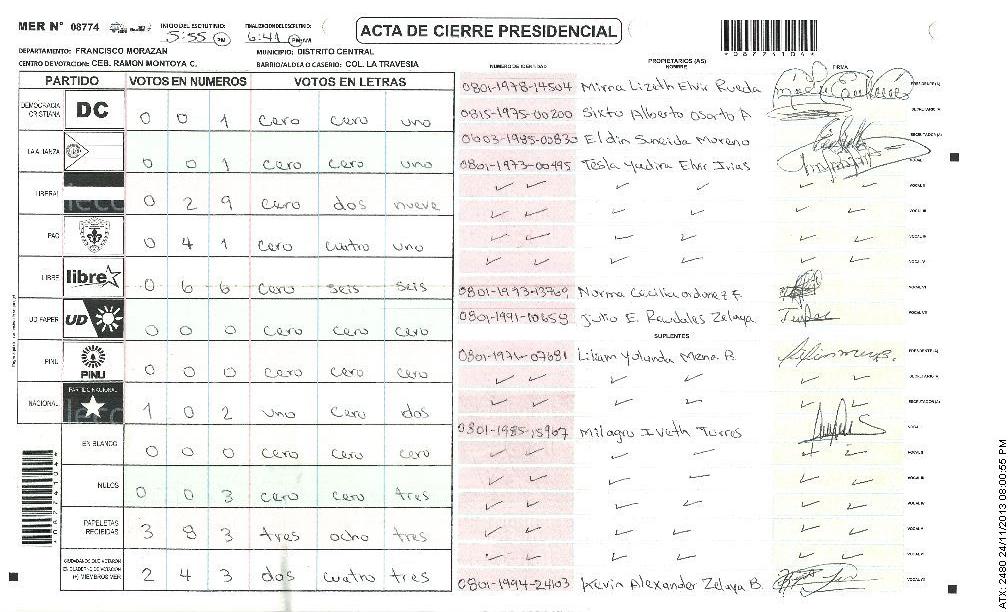 MER N° 08774
INICIO DEL ESCRUTINIO: 5:55 PM
FINALIZACION DEL ESCRUTINIO: 6:41 PM
ACTA DE CIERRE PRESIDENCIAL
* 0 8 7 7 4 1 0 4 *
DEPARTAMENTO: FRANCISCO MORAZAN
MUNICIPIO: DISTRITO CENTRAL
CENTRO DE VOTACION: CEB. RAMON MONTOYA C.
BARRIO/ALDEA O CASERIO: COL. LA TRAVESIA
PARTIDO VOTOS EN NUMEROS VOTOS EN LETRAS
DEMOCRACIA CRISTIANA DC 0 0 1 cero cero uno
LA ALIANZA 0 0 1 cero cero uno
LIBERAL 0 2 9 cero dos nueve
PAC 0 4 1 cero cuatro uno
LIBRE libre 0 6 6 cero seis seis
UD FAPER UD 0 0 0 cero cero cero
PINU PINU 0 0 0 cero cero cero
NACIONAL PARTIDO NACIONAL 1 0 2 uno cero dos
EN BLANCO 0 0 0 cero cero cero
NULOS 0 0 3 cero cero tres
PAPELETAS RECIBIDAS 3 8 3 tres ocho tres
CIUDADANOS QUE VOTARON EN CUADERNO DE VOTACION (+) MIEMBROS MER 2 4 3 dos cuatro tres
PROPIETARIOS (AS)
NUMERO DE IDENTIDAD NOMBRE FIRMA
0801-1978-14504 Mirna Lizeth Elvir Rueda PRESIDENTE (A)
0815-1975-00200 Sixto Alberto Osorto A SECRETARIO (A)
0603-1985-00830 Eldin Moreno ESCRUTADOR (A)
0801-1973-00495 Tesla Yadira Elvir Irias VOCAL I
VOCAL II
VOCAL III
VOCAL IV
VOCAL V
0801-1993-13769 Norma Cecilia Ordonez F. VOCAL VI
0801-1991-10659 Julio E. Raudales Zelaya VOCAL VII
SUPLENTES
0801-1976-07681 Liliam Yolanda Mena B. PRESIDENTE (A)
SECRETARIO (A)
ESCRUTADOR (A)
0801-1985-15967 Milagro Iveth Torres VOCAL I
VOCAL II
VOCAL III
VOCAL IV
VOCAL V
VOCAL VI
0801-1994-24103 Kevin Alexander Zelaya B. VOCAL VII
ATX: 2480 24/11/2013 08:00:55 PM